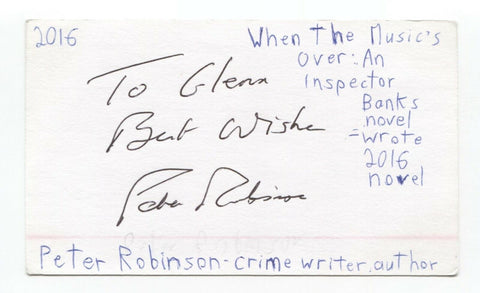 2016
When the Music's
Over: An
Inspector
Banks
novel
=wrote
2016
novel
To Glenn
Best Wishes
Peter Robinson
Peter Robinson-crime writer, author